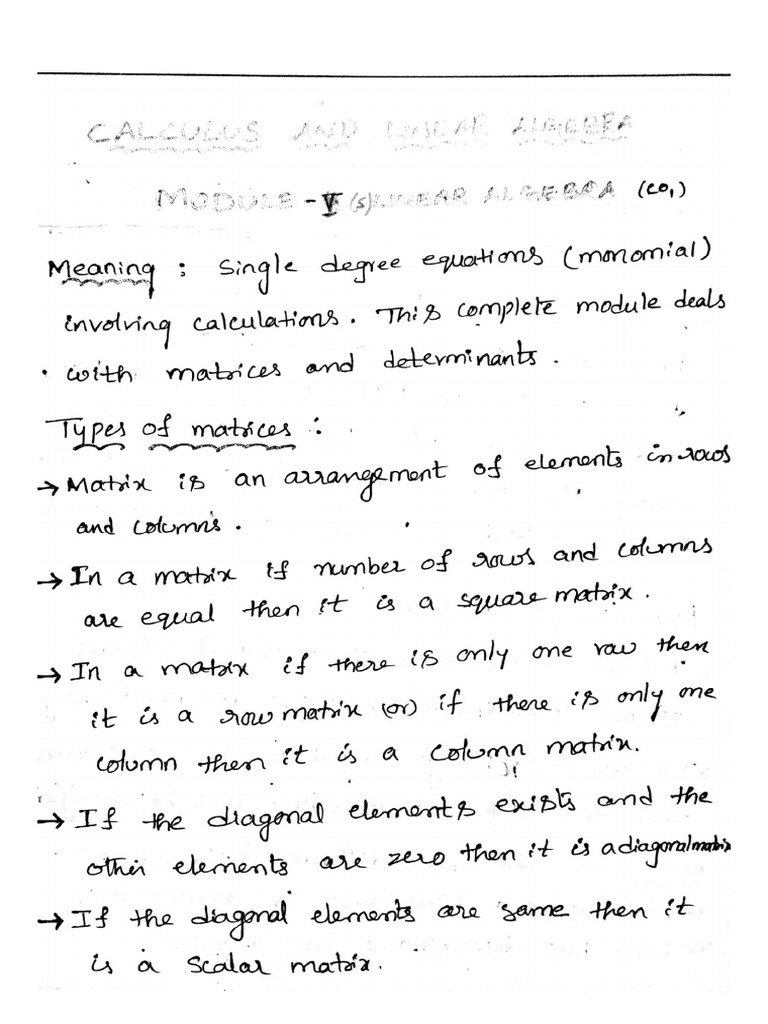 CALCULUS AND LINEAR ALGEBRA
MODULE - V (S) LINEAR ALGEBRA (CO1)
Meaning : Single degree equations (monomial)
involving calculations. This complete module deals
with matrices and determinants.
Types of matrices :
→ Matrix is an arrangement of elements in rows
and columns.
→ In a matrix if number of rows and columns
are equal then it is a square matrix.
→ In a matrix if there is only one row then
it is a row matrix (or) if there is only one
column then it is a column matrix.
→ If the diagonal elements exists and the
other elements are zero then it is a diagonal matrix
→ If the diagonal elements are same then it
is a scalar matrix.